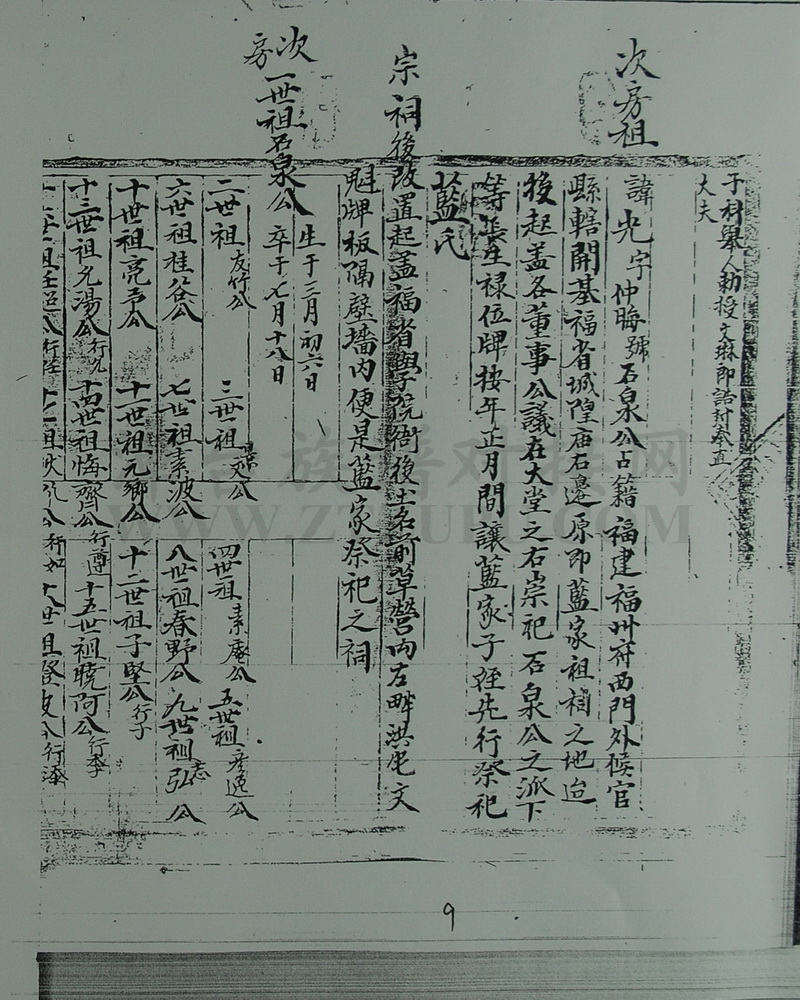 子科舉人勅授文琳郎誥封奉直
大夫
次房祖
諱光字仲晦號石泉公占籍福建福州府西門外候官
縣轄開基福省城隍廟右邊原即藍家祖祠之地迨
後起蓋各董事公議在大堂之右崇祀石泉公之派下
等長生祿位牌按年正月間讓藍家子姪先行祭祀
藍氏
宗祠後改置起蓋福省學院衙後土名前草營內左畔洪宅文
魁牌板隔壁墻內便是藍家祭祀之祠
次房
一世祖石泉公
生于三月初六日
卒于七月十八日
二世祖友竹公 三世祖文公 四世祖素庵公 五世祖彥逸公
六世祖桂谷公 七世祖素波公 八世祖春野公 九世祖弘志公
十世祖亮予公 十一世祖元鄉公 十二世祖子堅公行子
十三世祖允湯公行九 十四世祖悔齊公行遵 十五世祖曉阿公行季
祖 公行 祖 公行如 十八世祖 波公行
9